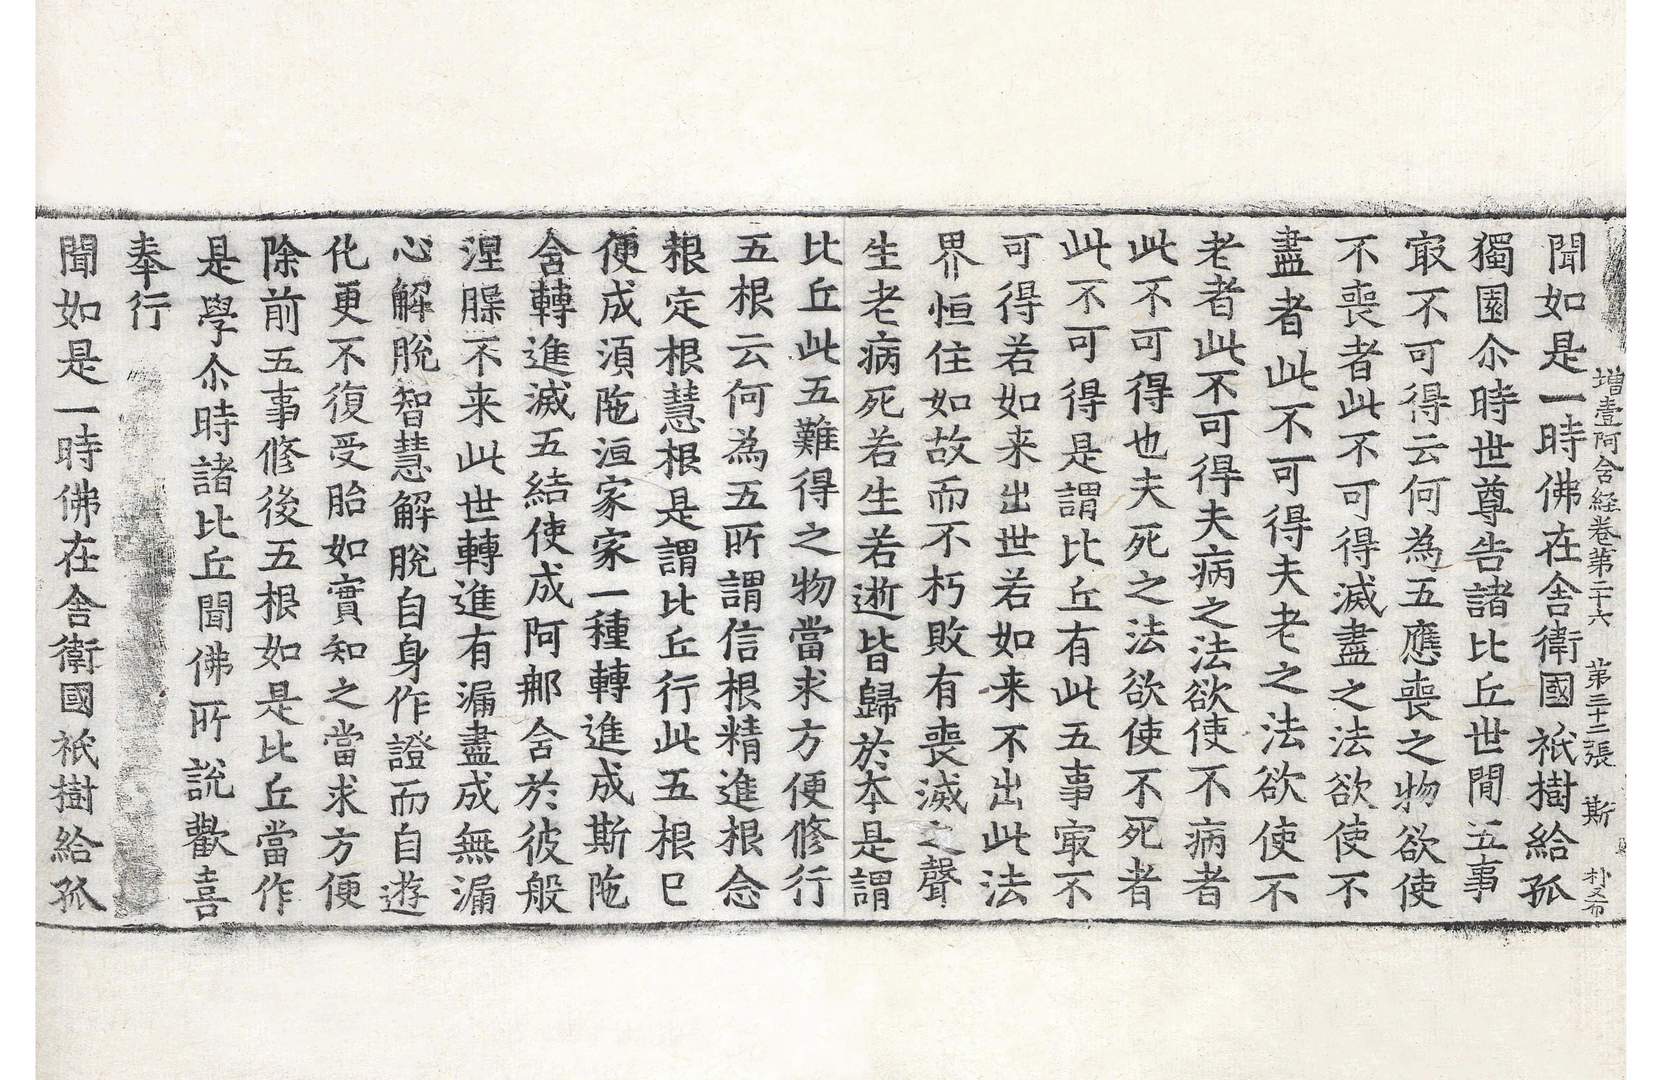 增壹阿含経卷第二十六 第三十二張 斯 朴又布
聞如是一時佛在舎衛國祇樹給孤
獨園尒時世尊告諸比丘世間五事
㝡不可得云何為五應喪之物欲使
不喪者此不可得滅盡之法欲使不
盡者此不可得夫老之法欲使不
老者此不可得夫病之法欲使不病者
此不可得也夫死之法欲使不死者
此不可得是謂比丘有此五事㝡不
可得若如来出世若如来不出此法
界恒住如故而不朽敗有喪滅之聲
生老病死若生若逝皆歸於夲是謂
比丘此五難得之物當求方便修行
五根云何為五所謂信根精進根念
根定根慧根是謂比丘行此五根已
便成須陁洹家家一種轉進成斯陁
含轉進滅五結使成阿那含於彼般
涅槃不来此世轉進有漏盡成無漏
心解脫智慧解脫自身作證而自遊
化更不復受胎如實知之當求方便
除前五事修後五根如是比丘當作
是學尒時諸比丘聞佛所說歡喜
奉行
聞如是一時佛在舎衛國祇樹給孤